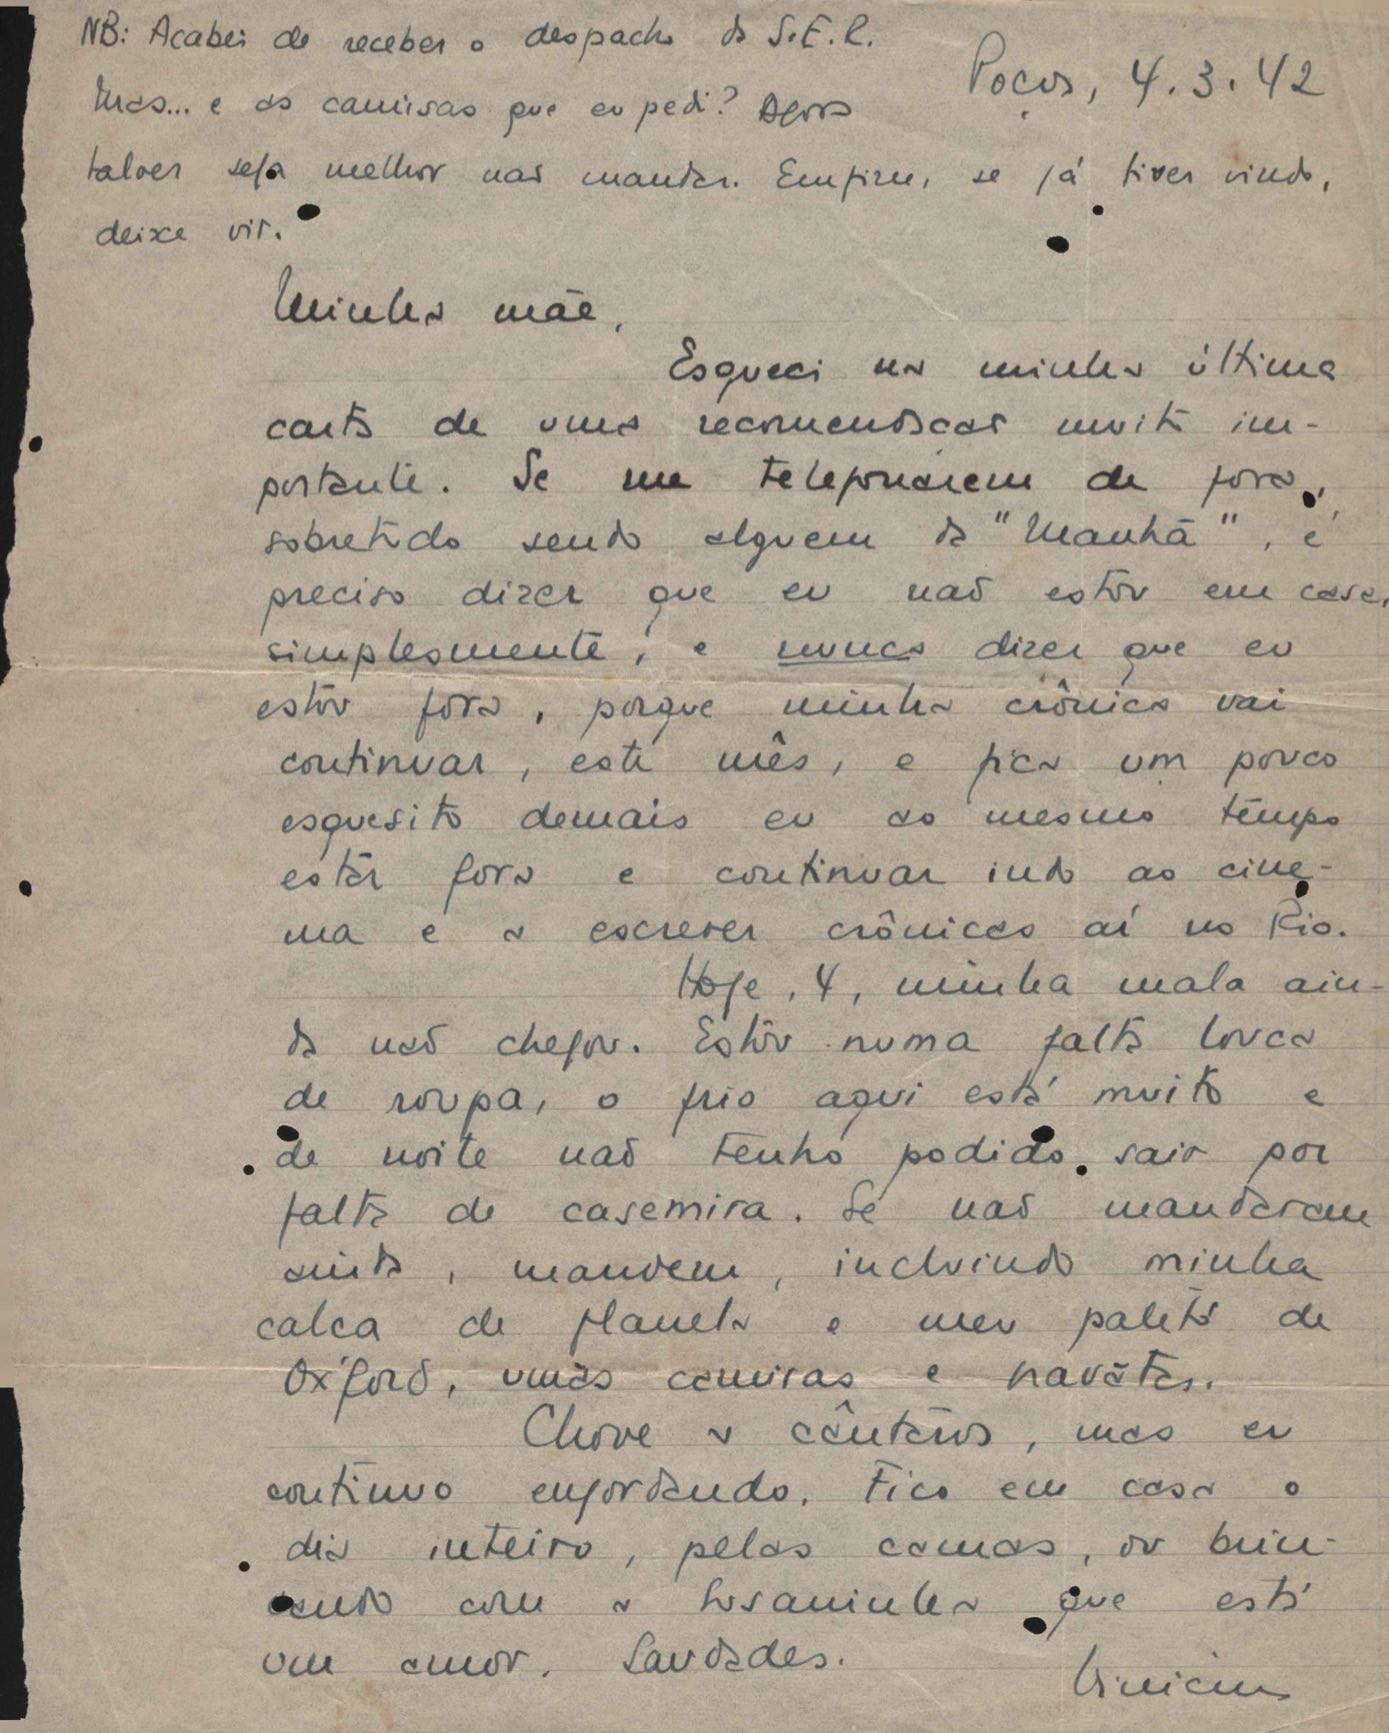 NB: Acabei de receber o despacho do S.E.R.
Poços, 4.3.42
Mas... e as camisas que eu pedi? Agora
talvez seja melhor não mandar. Emfim, se já tiver vindo,
deixe vir.
Minha mãe,
Esqueci na minha última
carta de uma recomendação muito im-
portante. Se me telefonarem de fora,
sobretudo sendo alguem da "Manhã", é
preciso dizer que eu não estôu em casa,
simplesmente, e nunca dizer que eu
estôu fora, porque minha crônica vai
continuar, este mês, e fica um pouco
esquesito demais eu ao mesmo têmpo
estár fora e continuar indo ao cine-
ma e a escrever crônicas aí no Rio.
Hoje, 4, minha mala ain-
da não chegou. Estôu numa falta louca
de roupa, o frio aqui está muito e
de noite não tenho podido sair por
falta de casemira. Se não mandaram
ainda, mandem, incluindo minha
calca de flanela e meu paletó de
Oxford, umas camisas e navátas.
Chove a cântaros, mas eu
continuo engordando. Fico em casa o
dia inteiro, pelas camas, ou brin-
cando com a Susaninha que está
um amor. Saudades.
Vinicius